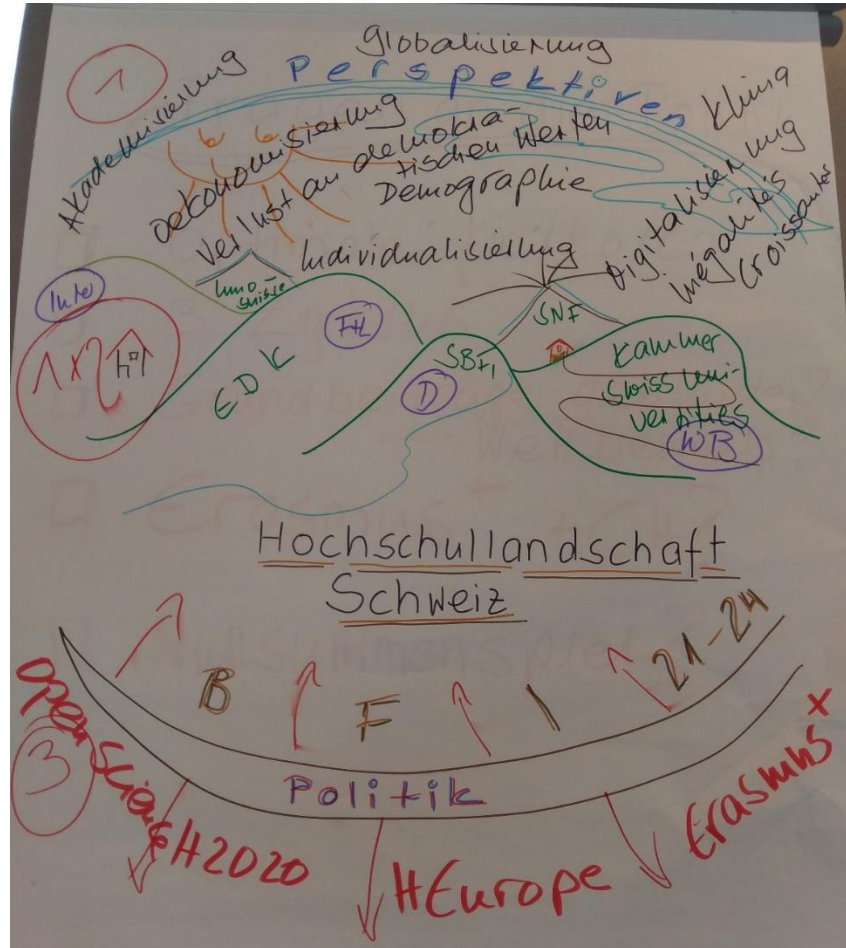 1
Globalisierung
Perspektiven
Akademisierung
Oekonomisierung
Verlust an demokra-
tischen Werten
Demographie
Klima
Digitalisierung
inégalités
croissantes
Individualisierung
Inno
suisse
Inter
FH
EDK
SBFI
D
SNF
Kammer
Swiss uni-
versities
WB
Hochschullandschaft
Schweiz
B F I 21-24
Politik
3
Open Science
H2020
HEurope
Erasmus+